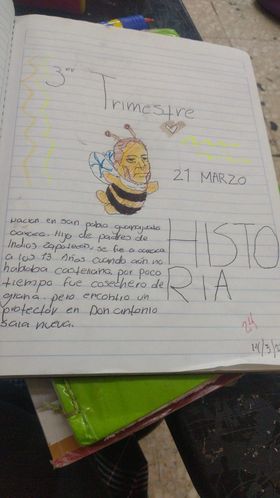 3er
Trimestre
21 MARZO
HISTO
RIA
Nacion en san pablo guanguato
oaxaca. Hijo de padres de
Indios zapotecos, se fue a oaxaca
a los 13 Años cuando aún no
hablaba castellana, por poco
tiempo fue cosechero de
grana. pero encontro un
protector en Don antonio
sala nueva.